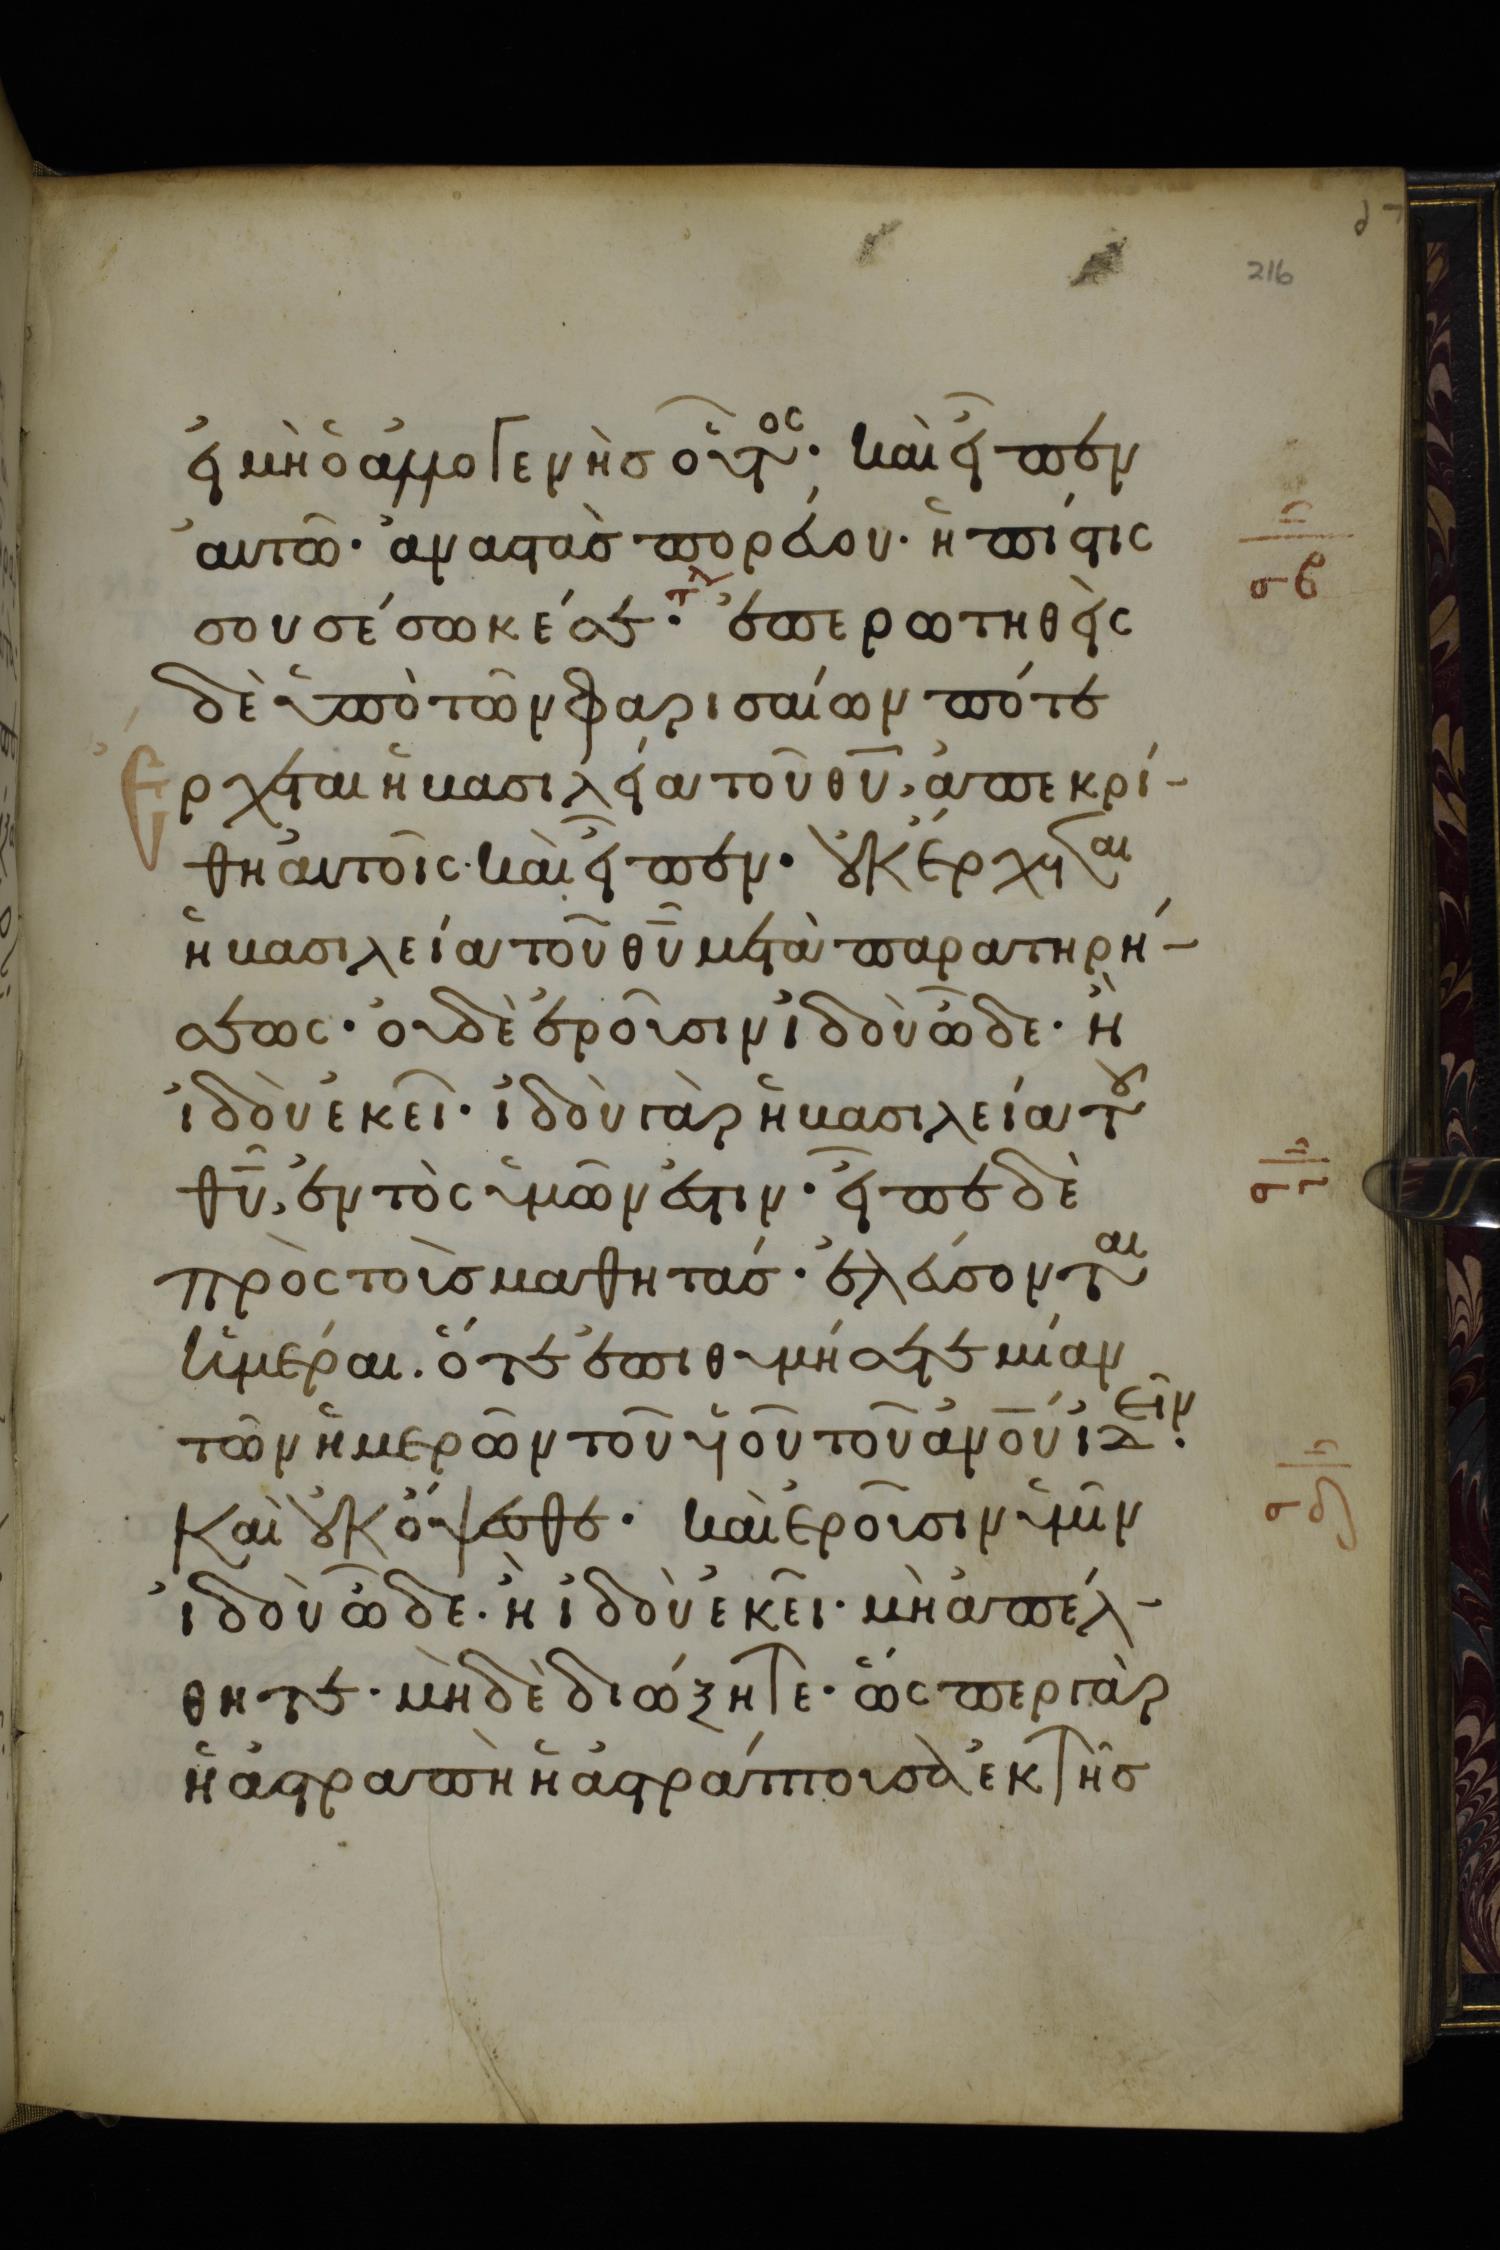 216
εἰ μὴ ὁ ἀλλογενὴσ οὗτος· καὶ εἶπεν
αυτῶ· ἀναστὰσ πορεύου· ἡ πίστις
σου σέσωκέ σε· τλ ἐπερωτηθεὶς
δὲ ὑπὸ τῶν φαρισαίων πότε
Ερχεται ἡ βασιλεία τοῦ θῦ, ἀπεκρί-
θη αυτοῖς· καὶ εἶπεν· οὐκ ἔρχεται
ἡ βασιλεία τοῦ θῦ μετὰ παρατηρή-
σεως· οὐδὲ ἐροῦσιν ἰδοὺ ὧδε· ἢ
ἰδοὺ ἐκεῖ· ἰδοὺ γὰρ ἡ βασιλεία του
θῦ, ἐντὸς ὑμῶν ἐστιν· εἶπε δὲ
πρὸς τοὺσ μαθητάσ· ἐλεύσονται
ἡμέραι. ὅτε ἐπιθυμήσετε μίαν
τῶν ἡμερῶν τοῦ υἱοῦ τοῦ ἀνοῦ ἰδεῖν.
Και οὐκ ὄψεσθε· καὶ ἐροῦσιν ὑμῖν
ἰδοὺ ὧδε· ἢ ἰδοὺ ἐκεῖ· μὴ ἀπέλ-
θητε· μὴδὲ διώξητε· ὥςπερ γὰρ
ἡ ἀστραπὴ ἡ ἀστράπτουσα ἐκ τῆσ